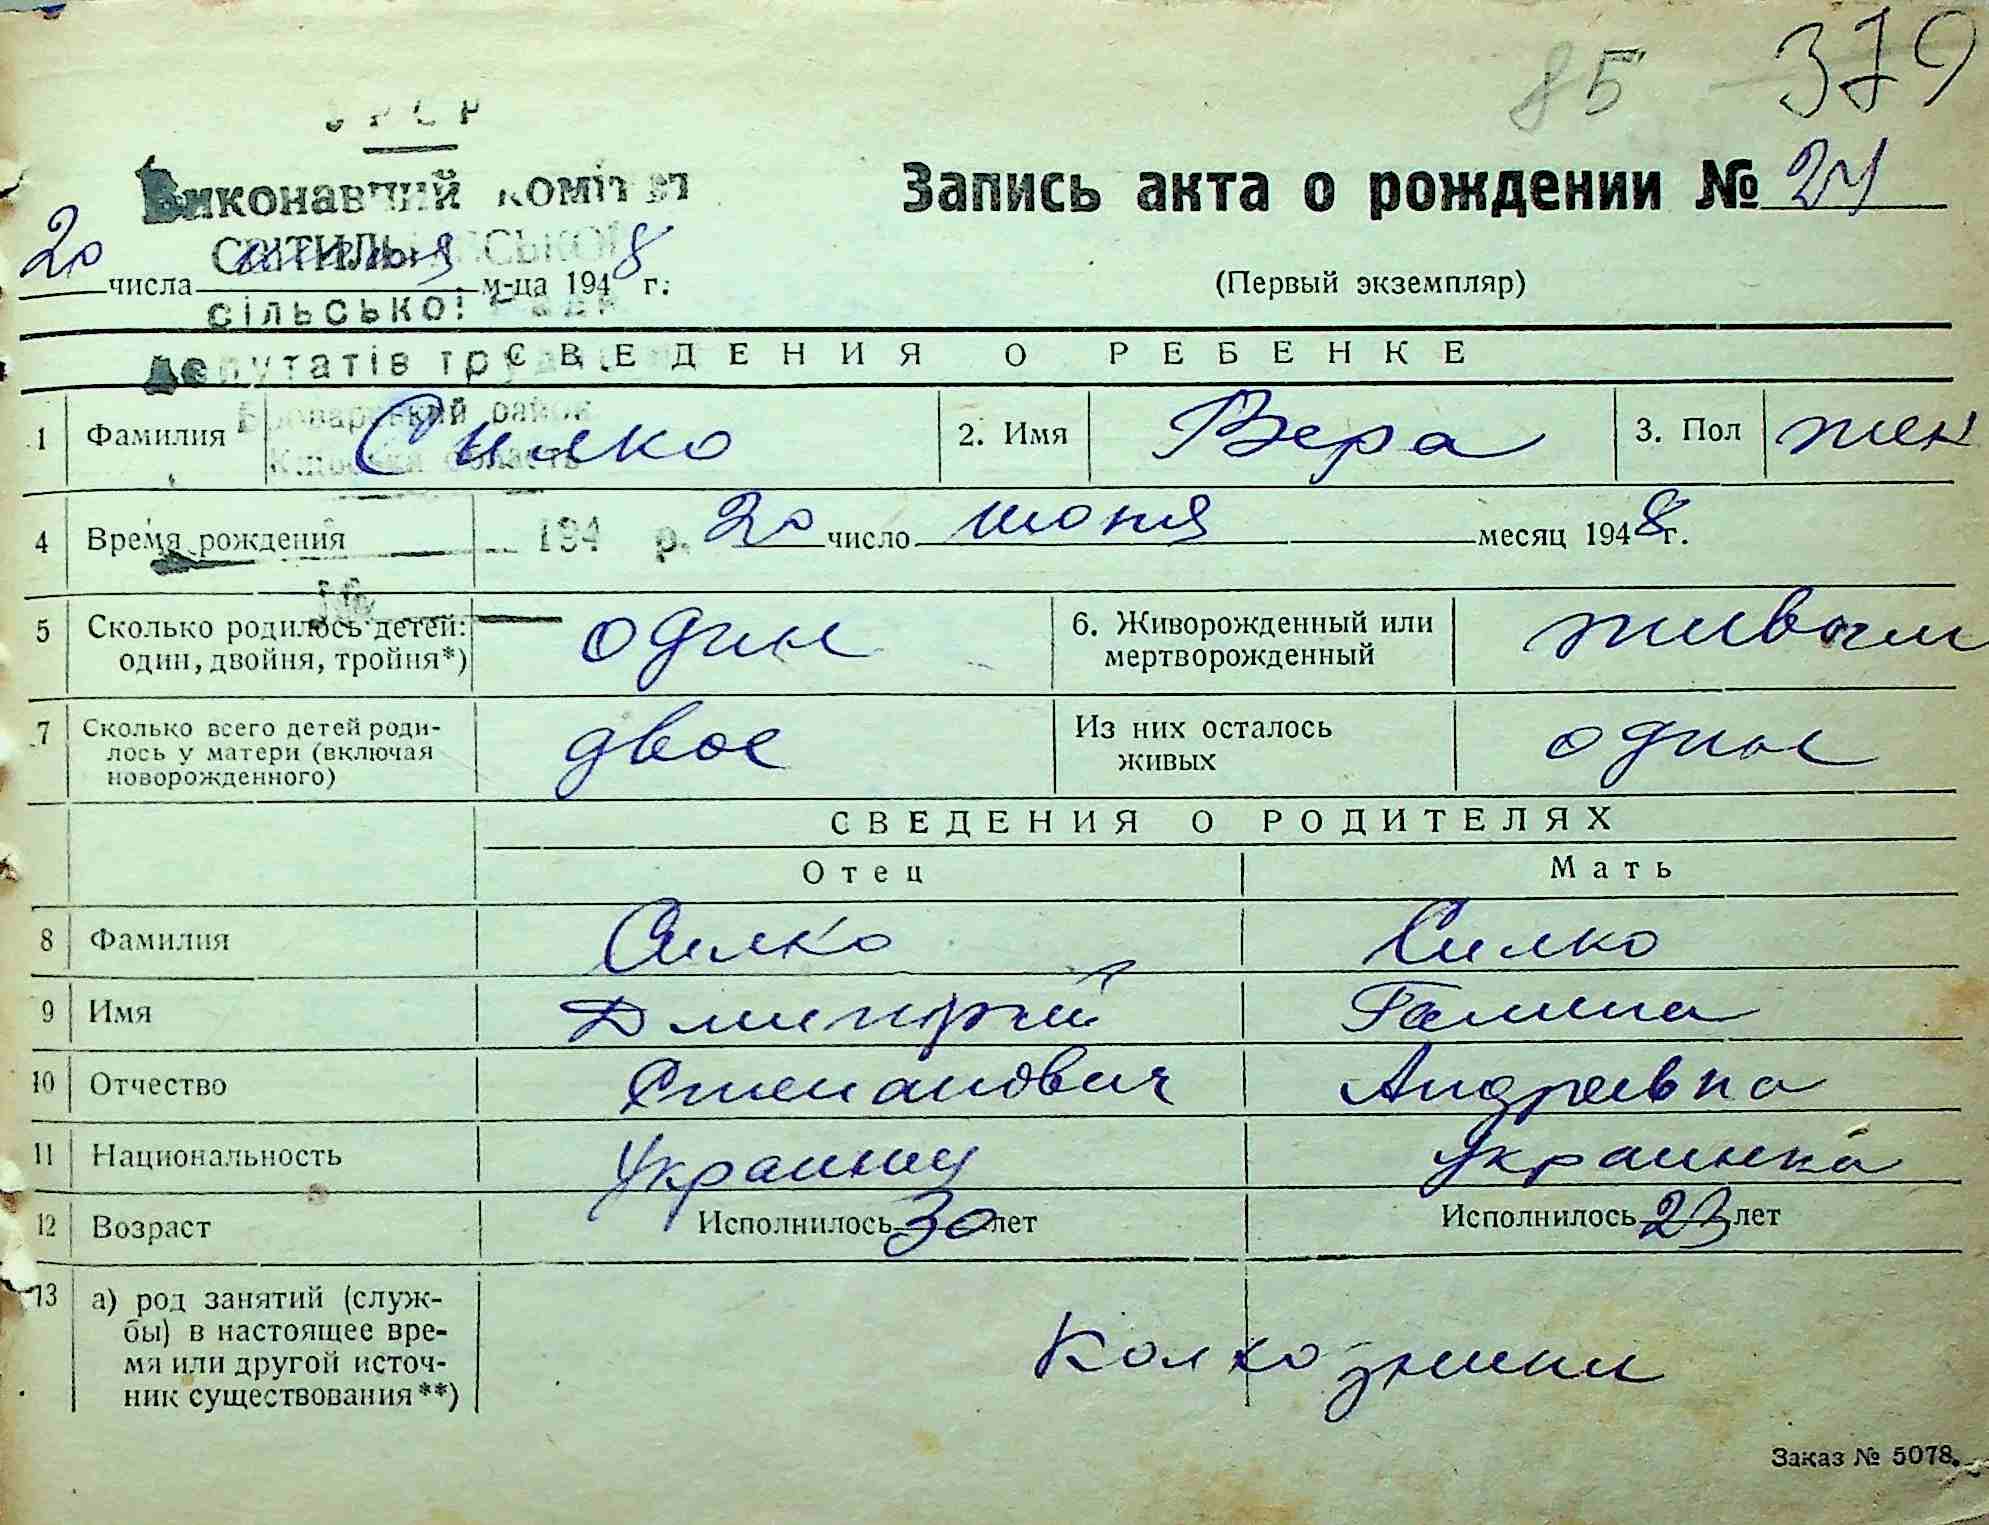 85 379
УРСР
Виконавчий комітет
Запись акта о рождении № 24
СВІТИЛЬНІВСЬКОЇ
20 числа июня м-ца 1948 г.
(Первый экземпляр)
сільської Ради
депутатів трудящих
СВЕДЕНИЯ О РЕБЕНКЕ
Броварський район
Київська область
1 Фамилия Силко 2. Имя Вера 3. Пол жен
194 р.
4 Время рождения 20 число июня месяц 1948 г.
№
5 Сколько родилось детей: один, двойня, тройня*) один 6. Живорожденный или мертворожденный живым
7 Сколько всего детей родилось у матери (включая новорожденного) двое Из них осталось живых одно
СВЕДЕНИЯ О РОДИТЕЛЯХ
Отец Мать
8 Фамилия Силко Силко
9 Имя Дмитрий Галина
10 Отчество Степанович Андреевна
11 Национальность Украинец Украинка
12 Возраст Исполнилось 30 лет Исполнилось 23 лет
13 а) род занятий (служ-
бы) в настоящее вре-
мя или другой источ-
ник существования**)
Колхозники
Заказ № 5078.